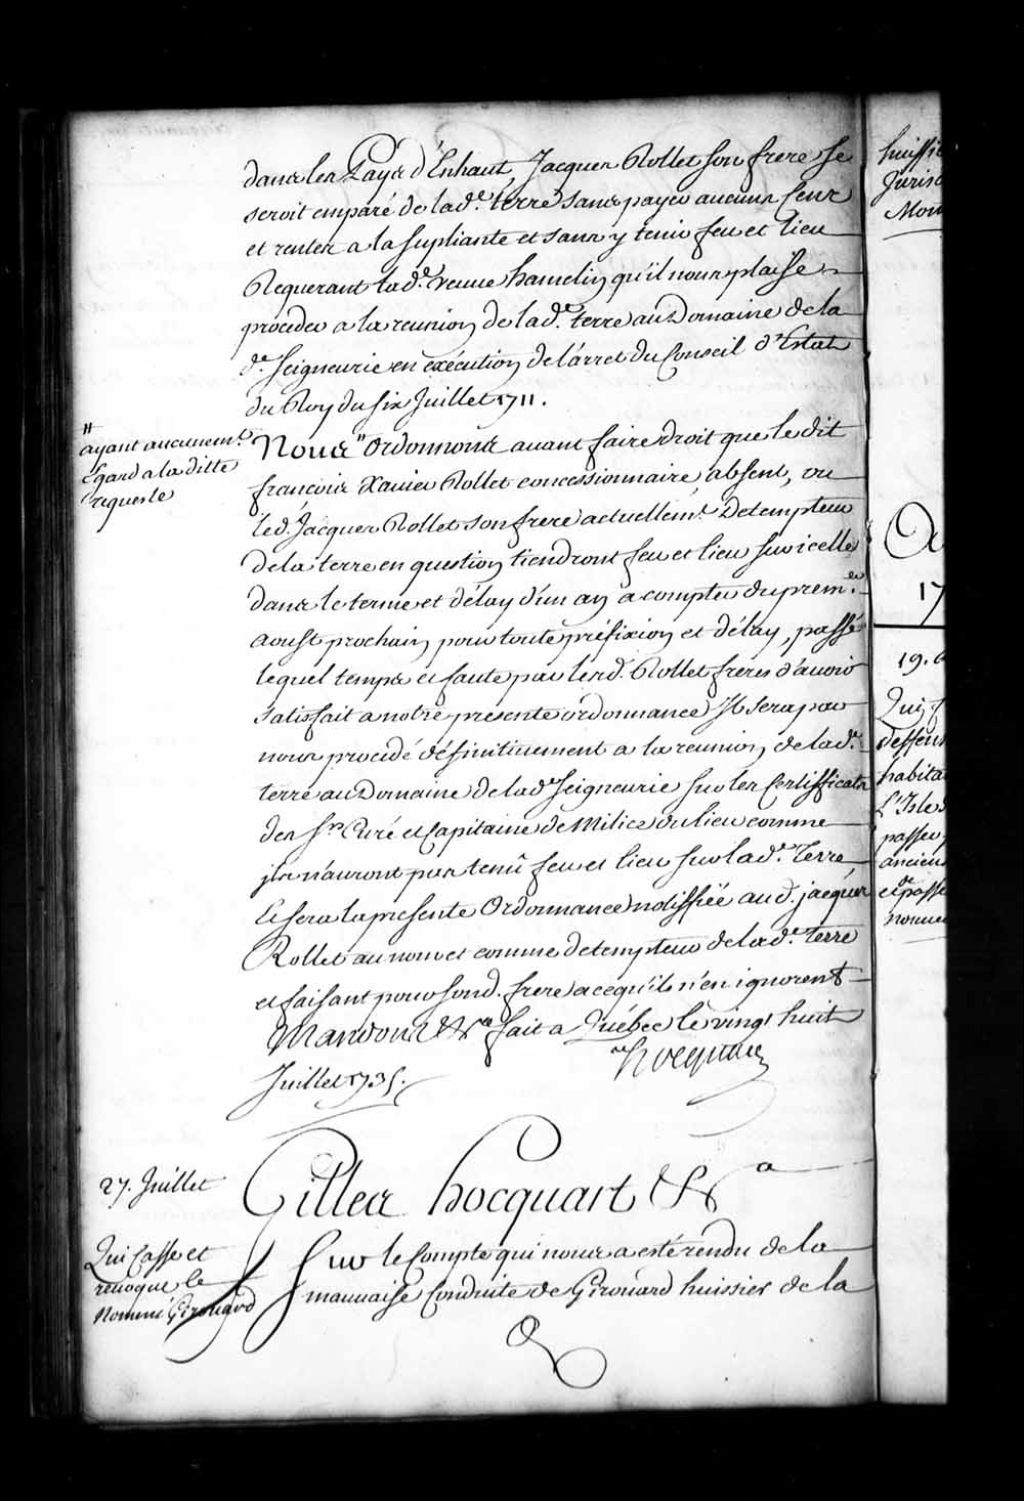 dans les Pays d'Enhaut, Jacques Rollet son frere se
seroit emparé de lad.e terre sans payer aucuns Cens
et rentes a la supliante et sans y tenir feu et lieu
Requerant lad.e veuve hamelin qu'il nous plaise
proceder a la reunion de lad.e terre au Domaine de la
d.e Seigneurie en exécution de l'arret du Conseil d'Estat
du Roy du six Juillet 1711.
"
ayant aucunem.t
Egard a la ditte
requeste
Nous " Ordonnons avant faire droit que le dit
francois Xavier Rollet concessionnaire absent, ou
led. Jacques Rollet son frere actuellem.t Detempteur
de la terre en question tiendront feu et lieu sur icelle
dans le terme et délay d'un an a compter du prem.er
aoust prochain pour toute préfixion et délay, passé
lequel temps et faute par lesd. Rollet freres d'avoir
satisfait a notre presente ordonnance Il sera par
nous procédé définitivement a la reunion de lad.e
terre au Domaine de lad.e Seigneurie sur les Certifficats
des Srs Curé et Capitaine de Milice du lieu comme
ils n'auront pas tenû feu et lieu sur lad.e Terre
Et sera la presente Ordonnance notiffiée aud. jacques
Rollet au nom et comme detempteur de lad.e terre
et faisant pour sond. frere a ce qu'ils n'en ignorent
Mandons &c.a fait a Québec le vingt huit
Juillet 1735.
hocquart
27. Juillet
Gilles hocquart &c.a
Qui Casse et
revoque le
Nommé Girouard
Sur le Compte qui nous a esté rendu de la
mauvaise Conduite de Girouard huissier de la
huissi
Juris
Mon
17
19.
Qui f
deffen
habita
L'Isle
passer
ancien
et de passe
nouve